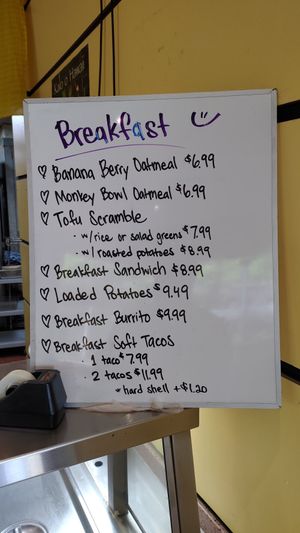 Kulo o Hawaii
Breakfast
♡ Banana Berry Oatmeal $6.99
♡ Monkey Bowl Oatmeal $6.99
♡ Tofu Scramble
• w/rice or salad greens $7.99
• w/ roasted potatoes $8.99
♡ Breakfast Sandwich $8.99
♡ Loaded Potatoes $9.49
♡ Breakfast Burrito $9.99
♡ Breakfast Soft Tacos
• 1 taco $7.99
• 2 tacos $11.99
* hard shell +$1.20